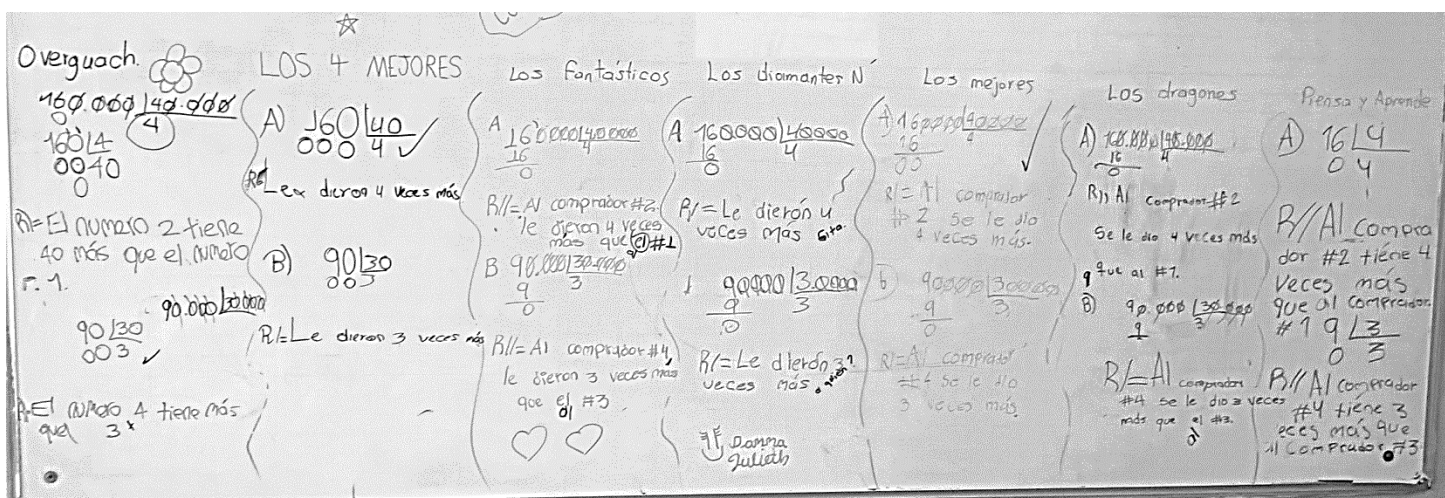 Overguach.
160.000 40.000
0 4
160 4
0040
0
R)= El numero 2 tiene
40 más que el numero
r. 1.
90.000 30000
90 30
003
R- El numero 4 tiene más
quel 3
LOS 4 MEJORES
A) 160 40
000 4
R/= Lex dieron 4 veces más
B) 90 30
003
R/= Le dieron 3 veces más
Los fantásticos
A 160000 40000
16 4
0
R//= Al comprador #2
le dieron 4 veces
más que el #1
B 90.000 30.000
9 3
0
R//= Al comprador #4
le dieron 3 veces más
que el #3.
al
Los diamantes N
A 160000 40000
16 4
0
R/= Le dierón 4
veces más
90000 3.0000
9 3
0
R/= Le dierón 3
veces más a quien?
Danna
Julieth
Los mejores
A) 160000 40000
16 4
00
R/= Al comprador
#2 se le dio
4 veces más.
b 90000 30000
9 3
0
R/= Al comprador
#4 se le dio
3 veces más.
Los dragones
A) 160.000 40.000
16 4
0
R// Al comprador #2
Se le dio 4 veces más
que al #1.
B) 90.000 30.000
9 3
R/= Al comprador
#4 se le dio 3 veces
más que el #3.
al
Piensa y Aprende
A) 16 4
0 4
R// Al compra
dor #2 tiene 4
veces más
que al comprador
#1 9 3
0 3
R// Al comprador
#4 tiene 3
eces más que
al Comprador #3